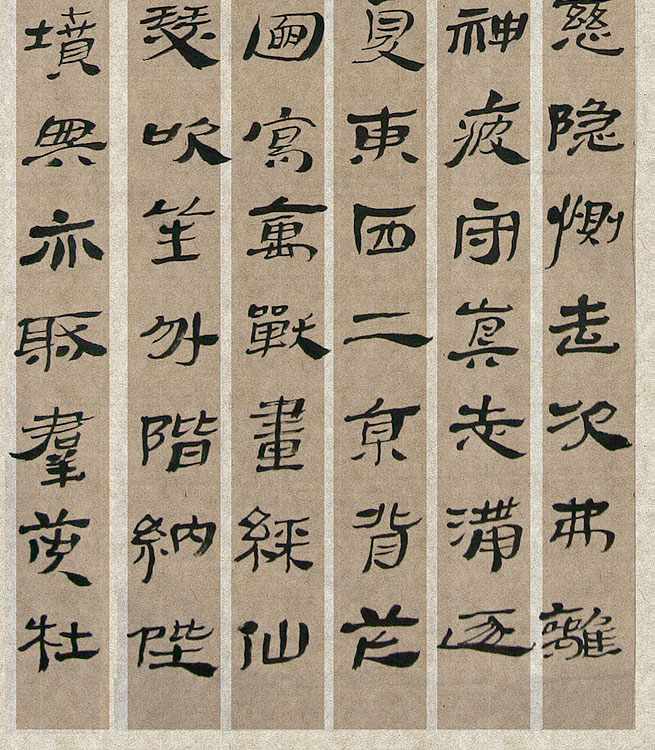 慈隐惻造次弗離
神疲守真志滿逐
夏東西二京背芒
圖寫禽獸畫綵仙
瑟吹笙升階納陛
墳典亦聚羣英杜